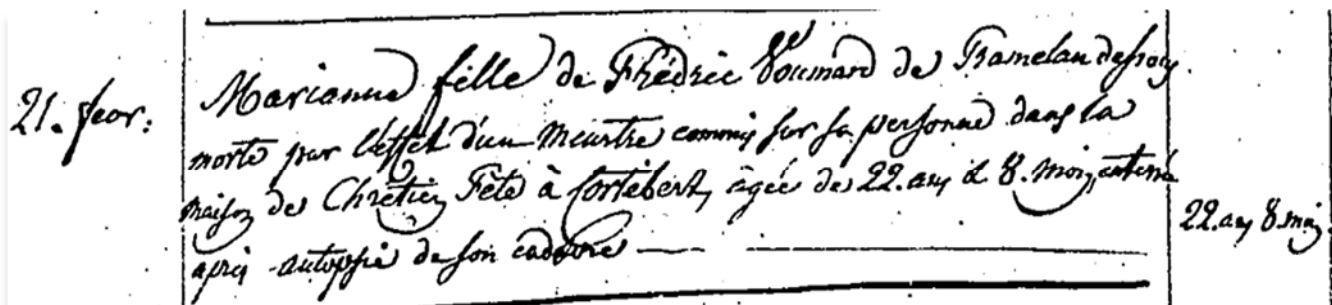 21. fevr:
Marianne fille de Fhédric Voumard de Tramelan dessous
morte par l'effet d'un meurtre commis sur sa personne dans la
maison de Chrétien Fete à Cortébert, agée de 22. ans & 8. mois, enterré
après autopsie de son cadavre
22. ans 8. mois